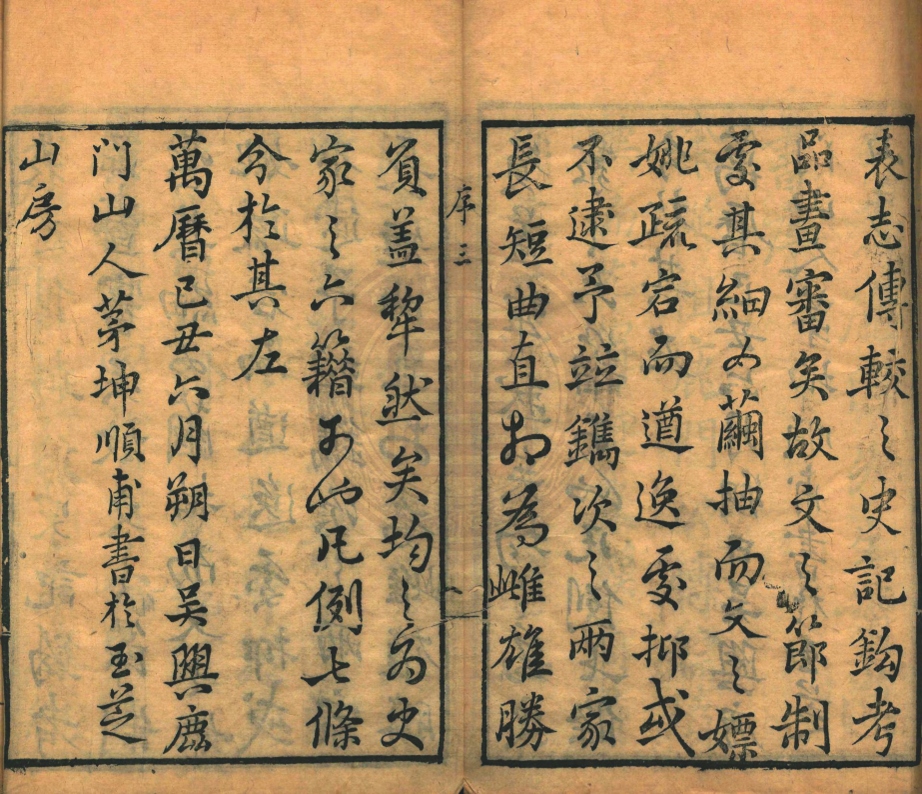 表志傳較之史記鈎考
品畫審矣故文之節制
處其細如繭抽而文之嫖
姚疏宕而遒逸處抑或
不逮予竝鐫次之兩家
長短曲直相為雌雄勝
序 三
負盖犂然矣均之為史
家之六籍可也凡例七條
分於其左
萬曆已丑六月朔日吴興鹿
門山人茅坤順甫書於玉芝
山房